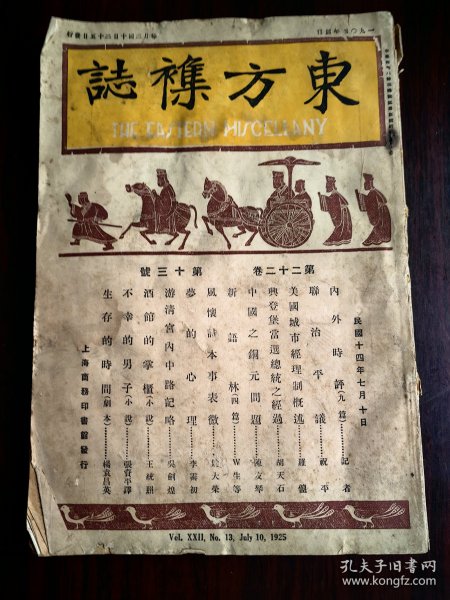 東方雜誌
THE EASTERN MISCELLANY
第二十二卷 第十三號
民國十四年七月十日
內外時評(九篇)………記者
聯治平議………祝平
美國城市經理制概述………
興登堡當選總統之經過………胡天石
中國之銅元問題………陳文
新語林(四篇)………W生等
風懷詩本事表徵………大榮
夢的心理………李
游清宮內中路記略………吳劍煌
酒館的掌櫃(小說)………王統照
不幸的男子(小說)………張資平譯
生存的時間(劇本)………楊袁昌英
上海商務印書館發行
Vol. XXII, No. 13, July 10, 1925
孔夫子旧书网
www.kongfz.com